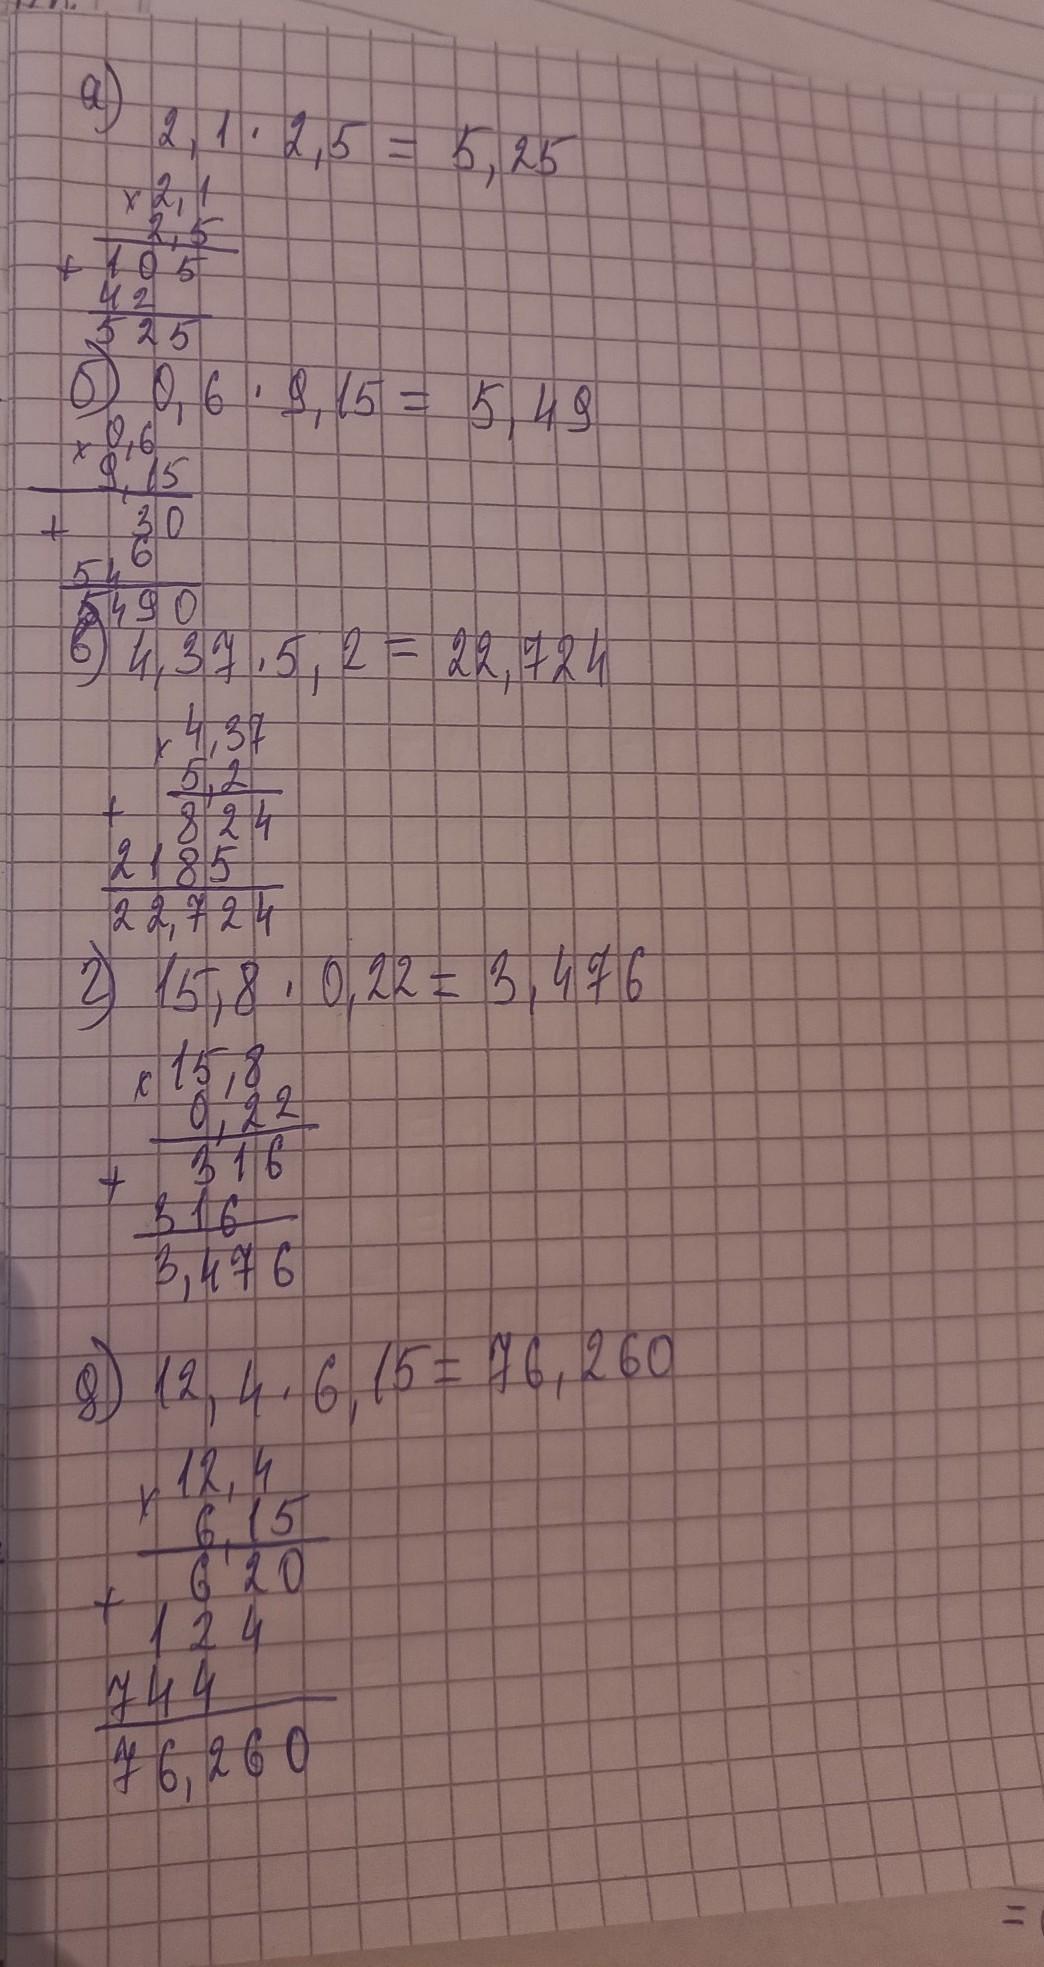 а)
2,1 · 2,5 = 5,25
× 2,1
2,5
+ 105
42
525
б) 0,6 · 9,15 = 5,49
× 0,6
9,15
+ 30
6
54
5490
в) 4,37 · 5,2 = 22,724
× 4,37
5,2
+ 824
2185
22,724
г) 15,8 · 0,22 = 3,476
× 15,8
0,22
+ 316
316
3,476
д) 12,4 · 6,15 = 76,260
× 12,4
6,15
+ 620
124
744
76,260
=